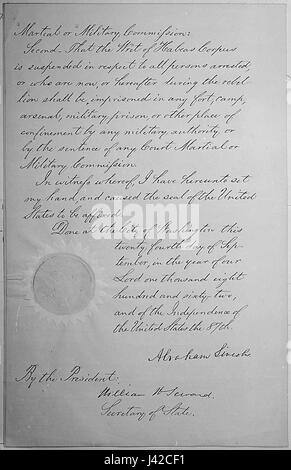 Martial or Military Commission:
Second. That the Writ of Habeas Corpus
is suspended in respect to all persons arrested,
or who are now, or hereafter during the rebel
lion shall be, imprisoned in any fort, camp,
arsenal, military prison, or other place of
confinement by any military authority, or
by the sentence of any Court Martial or
Military Commission.
In witness whereof, I have hereunto set
my hand, and caused the seal of the United
States to be affixed
Done at the City of Washington this
twenty fourth day of Sep-
tember, in the year of our
Lord one thousand eight
hundred and sixty-two,
and of the Independence of
the United States the 87th.
Abraham Lincoln
By the President:
William H Seward
Secretary of State.
alamy
Image ID: M42CF1
www.alamy.com